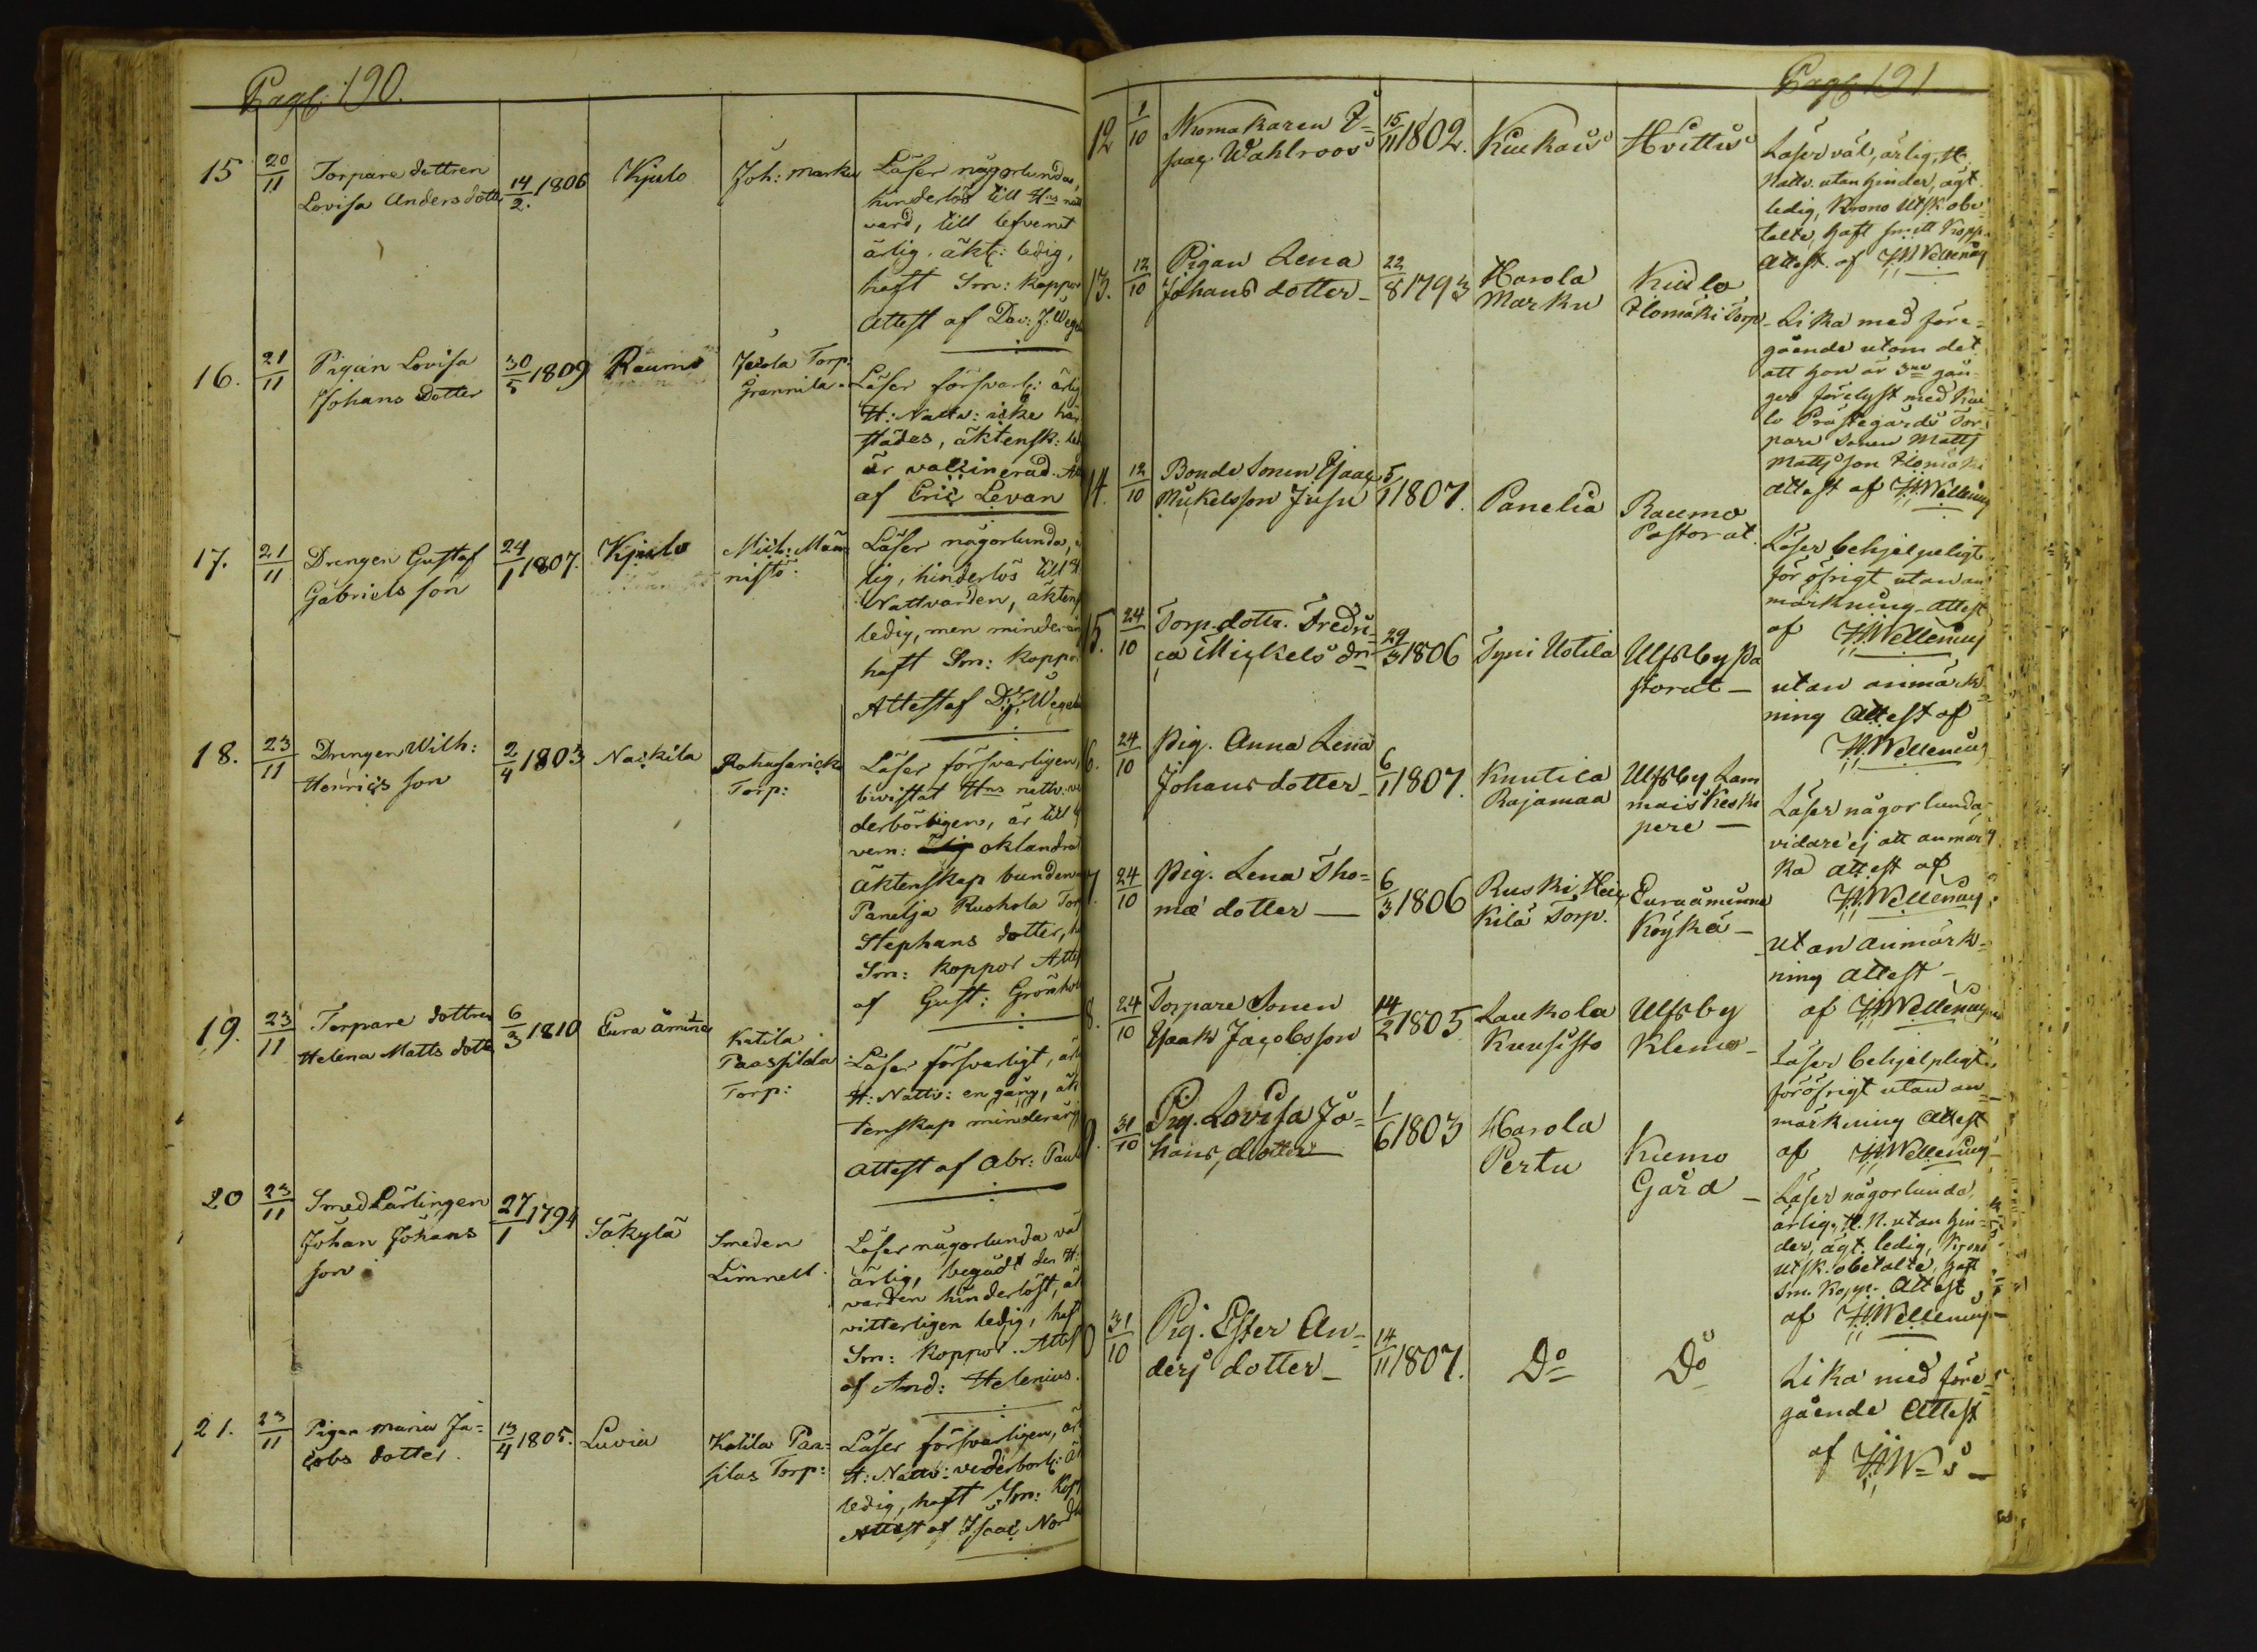 Pag: 190.
15 20/11 Torpare dottren
Lovisa Anders dotter 14/2. 1806 Kjulo Joh: Marku
Läser någorlunda,
hinderlös till Hns natt
vard, till lefvernet
ärlig, äkt: ledig,
haft Sm: koppor
Attest af Dav: J. Wegel
16. 21/11 Pigan Lovisa
Johans Dotter 30/5 1809 Raumo Torp:
Grannila
Läser försvarl: ärlig
H: Nattv: icke här
städes, äktensk: led
är vaccinerad. Att
af Eric Levan
17. 21/11 Drengen Gustaf
Gabriels son 24/1 1807. Kjulo Mich: Män-
nistö
Läser någorlunda,
lig, hinderlös till H
Nattvarden, äktens
ledig, men minderår
haft Sm: koppor
Attest af D: J. Wegel
18. 23/11 Drengen Wilh:
Henrics son 2/4 1803 Nackila
Torp:
Läser försvarligen,
bivistat Hns nattv. ve
derbörligen, är till
vern: oklandrad
äktenskap bunden
Panelja Ruohola Torp
Stephans dotter, h
Sm: koppor Attest
af Gust: Grönhol
19. 23/11 Torpare dottren
Helena Matts dotter 6/3 1810 Eura åminne
Katila
Paaspilala
Torp:
Läser försvarligt, ärl
H: Nattv: en gång, äk
tenskap minderårig
Attest af Abr: Paul
20 23/11 Smed Lärlingen
Johan Johans
son 27/1 1794 Säkylä
Smeden
Limnell.
Läser någorlunda väl
ärlig, begådt den H:
varden hinderlöst, äk
vitterligen ledig, haft
Sm: koppor. Attest
af And: Helenius.
21. 23/11 Pigan Maria Ja-
cobs dotter. 13/4 1805. Luvia
Katila Paa-
silas Torp:
Läser försvarligen, ärl
H: Nattv: vederbörl: äk
ledig, haft Sm: kopp
Attest af Isaac Nord
Pag: 191
12 1/10 Skomakaren I-
saac Wahlroos 15/11 1802. Kiukais Hvittis
Läser väl, ärlig, H.
Nattv. utan hinder, ägt.
ledig, Krono Utsk. obe-
talte, haft Smitt Kopp.
Attest. af HWellenius
13. 12/10 Pigan Lena
Johans dotter 22/8 1793 Harola
Marku Kiulo
Ilomäki Torp
Lika med före-
gående utom det
att hon är 3ne gån-
ger förelyst med Kiu-
lo Prästegårds Tor-
pare Sonen Matts
Matts son Ilomäki
Attest af HWellenius
14. 12/10 Bonde Sonen Isaac
Mickelsson Jusu 5/1 1807. Panelia Raumo
Pastorat.
Läser behjelpeligt
för öfrigt utan an-
märkning Attest
af HWellenius
15. 24/10 Torp. dottr. Fredri-
ca Mickels dr 29/3 1806 Tyni Uotila Ulfsby Pa
storat
utan anmärk-
ning Attest af
HWellenius
6. 24/10 Pig. Anna Lena
Johans dotter 6/1 1807. Knutila
Rajamaa Ulfsby Lam
mais Keski
pere
Läser någorlunda,
vidare ej att anmär-
ka Attest af
HWellenius
7. 24/10 Pig. Lena Tho-
mæ dotter 6/3 1806 Ruski Hei
kilä Torp. Euraåminne
Köykä
utan anmärk-
ning Attest
af HWellenius
8. 24/10 Torpare Sonen
Isaak Jacobsson 14/2 1805 Laukola
Kuusisto Ulfsby
Klemo
Läser behjelpligt
för öfrigt utan an-
märkning Attest
af HWellenius
9. 31/10 Pig. Lovisa Jo-
hans dotter 1/6 1803 Harola
Pertu Kiemo
Gård
Läser någorlunda,
ärlig, H. N. utan hin-
der, ägt. ledig, Krono
utsk. obetalte, haft
Sm. Kopp. Attest
af HWellenius
0 31/10 Pig. Ester An-
ders dotter 14/11 1807. Do Do
Lika med före-
gående Attest
af HW-s